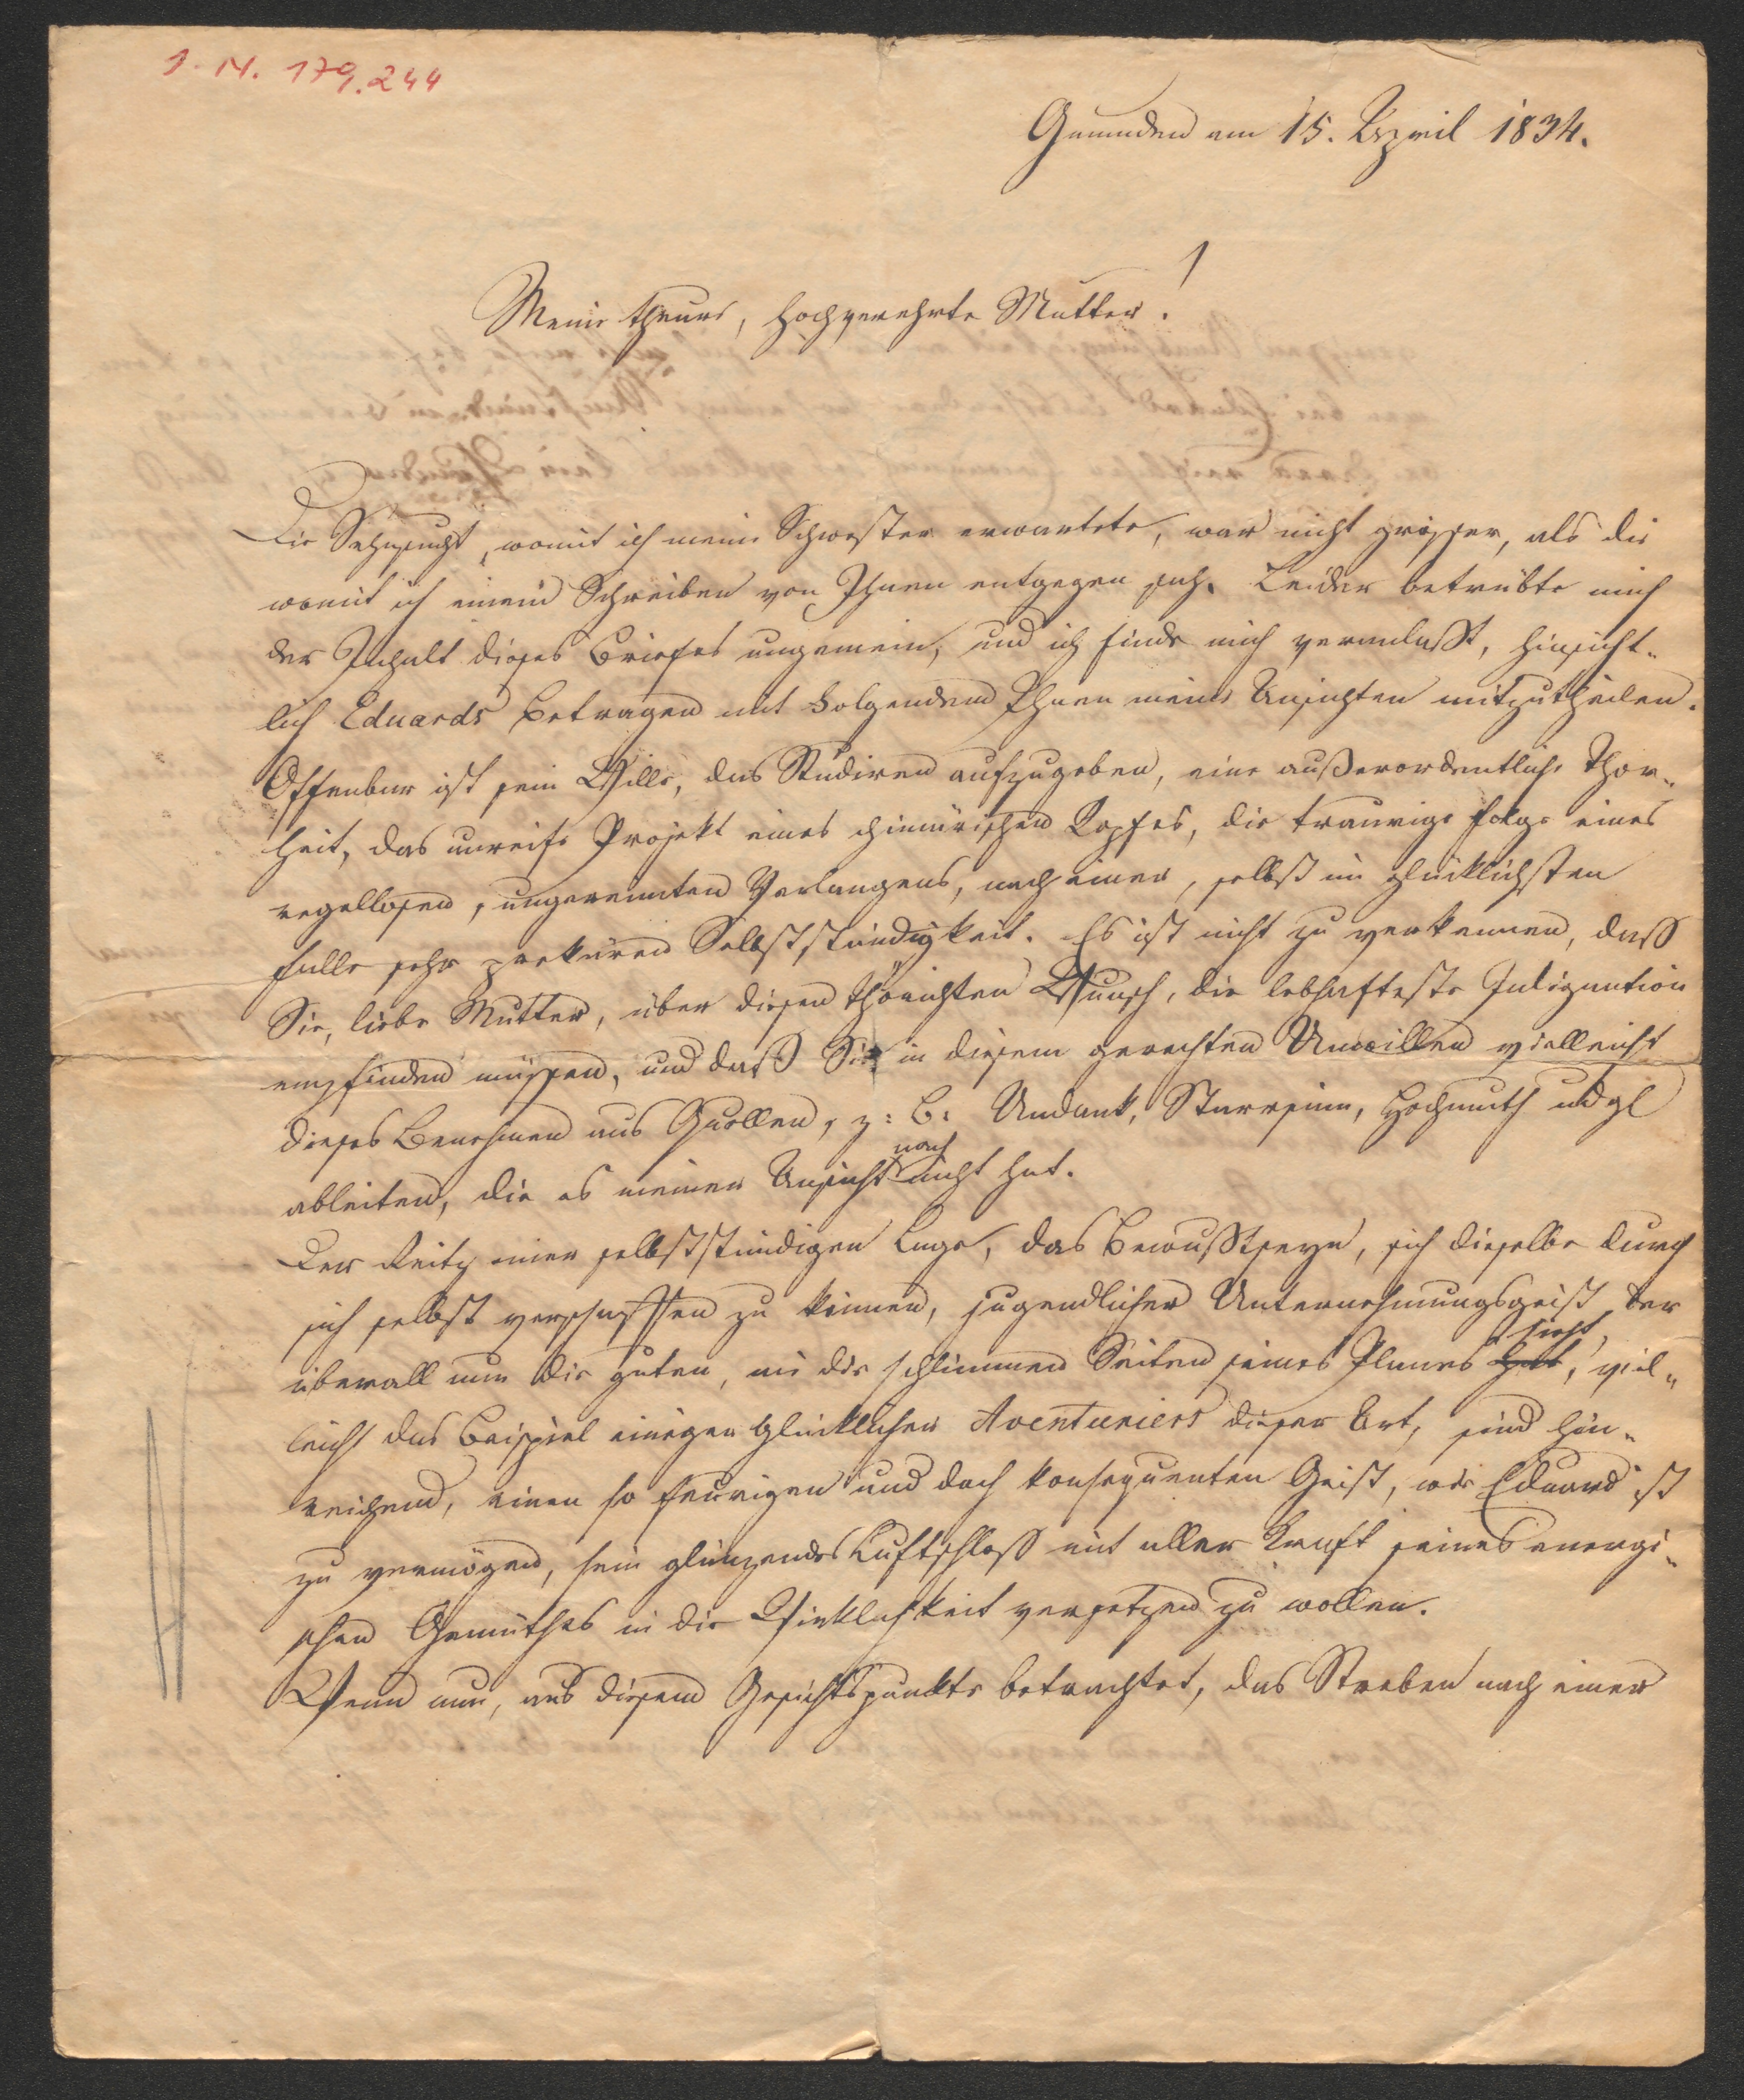 I. N. 179.244
Gmunden am 15. April 1834.
Meine theure, hochverehrte Mutter!
Die Sehnsucht, womit ich meine Schwester erwartete, war nicht grösser, als die
womit ich einem Schreiben von Ihnen entgegen sah. Leider betrübte mich
der Inhalt dieses Briefes ungemein, und ich finde mich veranlaßt, hinsicht-
lich Eduards Betragen mit Folgendem Ihnen meine Ansichten mitzutheilen.
Offenbar ist sein Wille, das Studiren aufzugeben, eine außerordentliche Thor-
heit, das unreife Projekt eines chimärischen Kopfes, die traurige Folge eines
regellosen, ungereimten Verlangens, nach einer, selbst im glücklichsten
Falle sehr prekären Selbstständigkeit. Es ist nicht zu verkennen, daß
Sie, liebe Mutter, über diesen thörichten Wunsch, die lebhafteste Indignation
empfinden müssen, und daß Sie in diesem gerechten Unwillen vielleicht
dieses Benehmen aus Quellen, z: B: Undank, Starrsinn, Hochmuth udgl
ableiten, die es meiner Ansicht nach nicht hat.
Der Reitz einer selbstständigen Lage, das Bewußtseyn, sich dieselbe durch
sich selbst verschaffen zu können, jugendlicher Unternehmungsgeist, der
überall nur die guten, nie die schlimmen Seiten seines Planes hat sieht, viel-
leicht das Beispiel einiger glücklichen Aventuriers dieser Art, sind hin-
reichend, einen so feurigen und doch konsequenten Geist, wie Eduard ist
zu vermögen, sein glänzendes Luftschloß mit aller Kraft seines energi-
schen Gemüthes in die Wirklichkeit versetzen zu wollen.
Wenn nun, aus diesem Gesichtspunkte betrachtet, das Streben nach einer